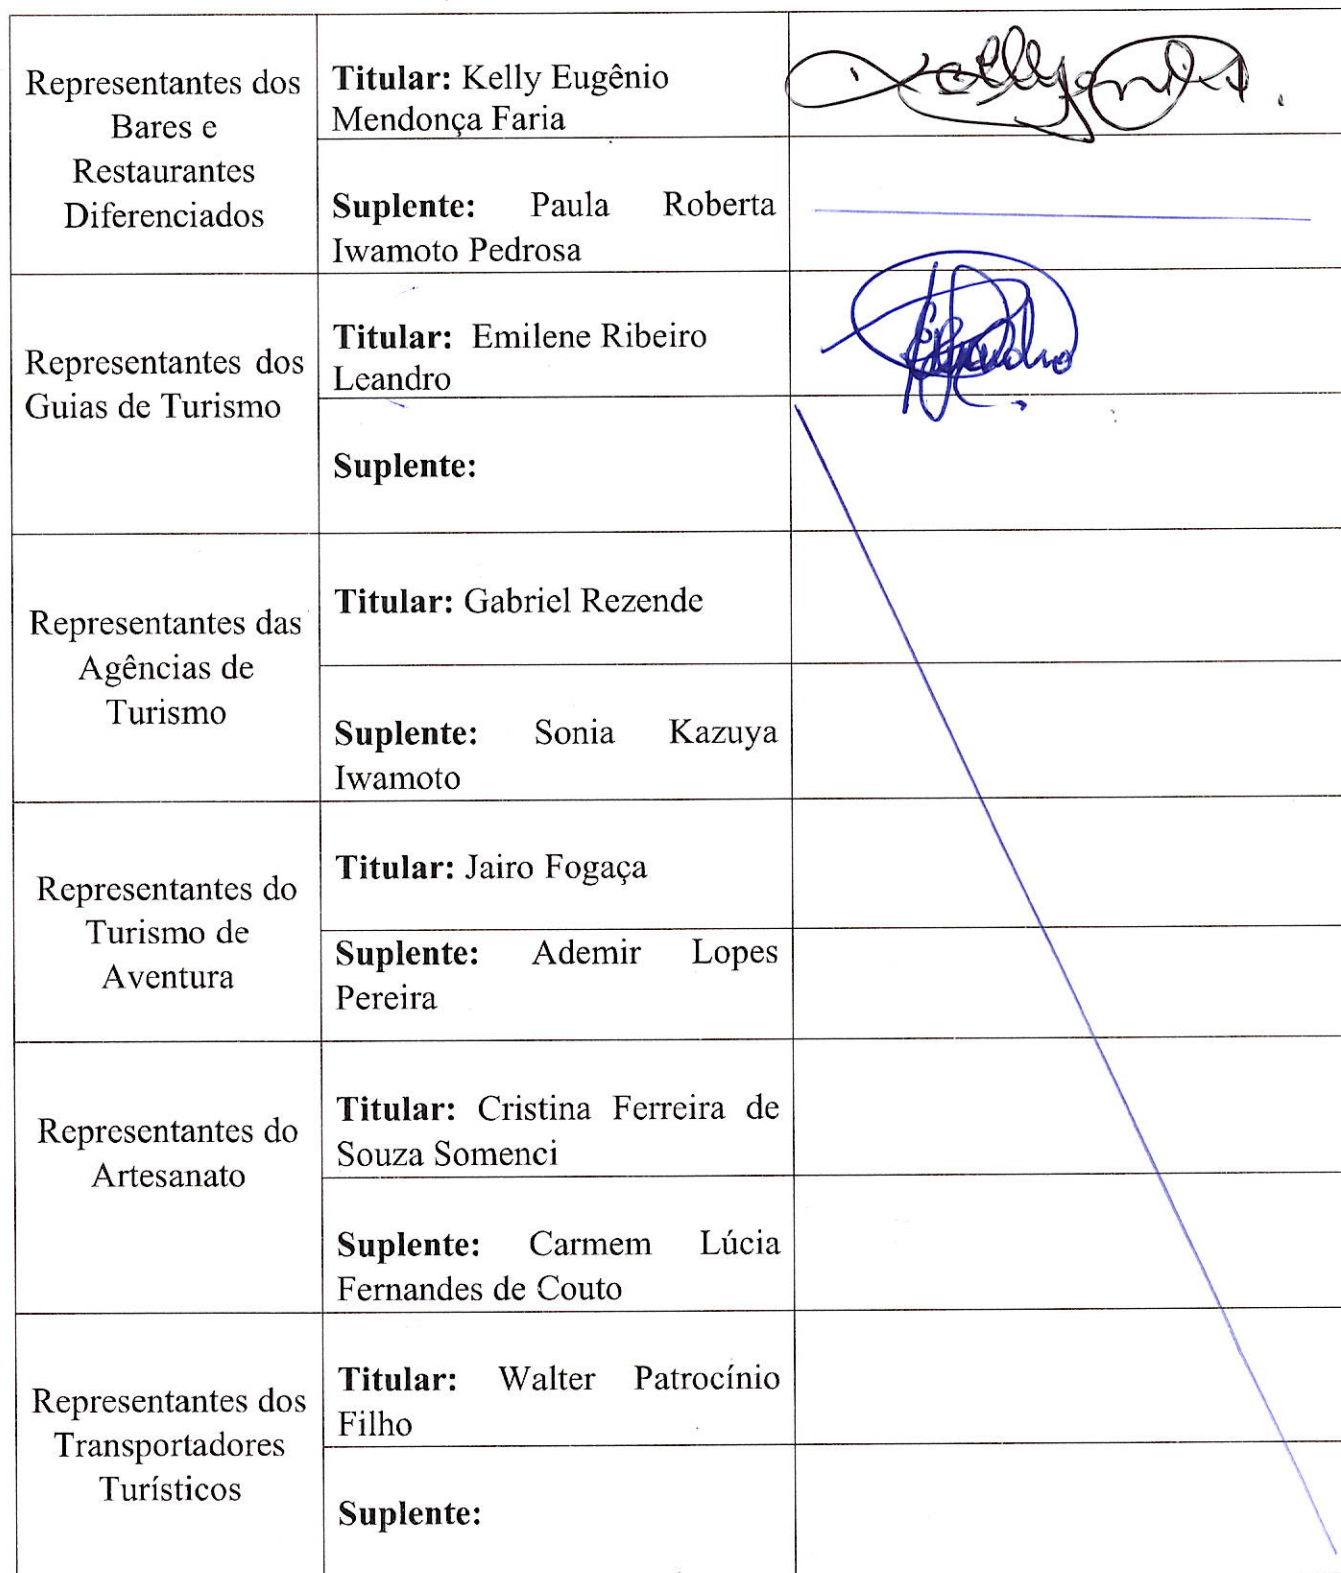 Representantes dos
Bares e
Restaurantes
Diferenciados
Titular: Kelly Eugênio
Mendonça Faria
Suplente: Paula Roberta
Iwamoto Pedrosa
Representantes dos
Guias de Turismo
Titular: Emilene Ribeiro
Leandro
Suplente:
Representantes das
Agências de
Turismo
Titular: Gabriel Rezende
Suplente: Sonia Kazuya
Iwamoto
Representantes do
Turismo de
Aventura
Titular: Jairo Fogaça
Suplente: Ademir Lopes
Pereira
Representantes do
Artesanato
Titular: Cristina Ferreira de
Souza Somenci
Suplente: Carmem Lúcia
Fernandes de Couto
Representantes dos
Transportadores
Turísticos
Titular: Walter Patrocínio
Filho
Suplente: